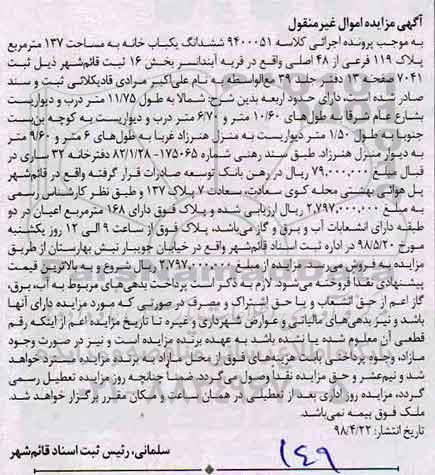 آگهی مزایده اموال غیرمنقول
به موجب پرونده اجرائی کلاسه ۹۴۰۰۰۵۱ ششدانگ یکباب خانه به مساحت ۱۳۷ مترمربع
پلاک ۱۱۹ فرعی از ۴۸ اصلی واقع در قریه آبندانسر بخش ۱۶ ثبت قائم‌شهر ذیل ثبت
۷۰۴۱ صفحه ۱۳ دفتر جلد ۳۹ مع‌الواسطه به نام علی‌اکبر مرادی قادیکلائی ثبت و سند
صادر شده است، دارای حدود اربعه بدین شرح: شمالا به طول ۱۱/۷۵ متر درب و دیواریست
بشارع عام شرقا به طول‌های ۱۰/۶۰ متر و ۶/۷۰ متر درب و دیواریست به کوچه بن‌بست
جنوبا به طول ۱/۵۰ متر دیواریست به منزل هنرزاد غربا به طول‌های ۶ متر و ۹/۶۰ متر
به دیوار منزل هنرزاد. طبق سند رهنی شماره ۱۷۵۰۶۵- ۸۲/۱/۲۸ دفترخانه ۳۲ ساری در
قبال مبلغ ۷۹,۰۰۰,۰۰۰ ریال در رهن بانک توسعه صادرات قرار گرفته واقع در قائم‌شهر
پل هوائی بهشتی محله کوی سعادت، سعادت ۷ پلاک ۱۳۷ و طبق نظر کارشناس رسمی
به مبلغ ۲,۷۹۷,۰۰۰,۰۰۰ ریال ارزیابی شده و پلاک فوق دارای ۱۶۸ مترمربع اعیان در دو
طبقه دارای انشعابات آب و برق و گاز می‌باشد، پلاک فوق از ساعت ۹ الی ۱۲ روز یکشنبه
مورخ ۹۸/۵/۲۰ در اداره ثبت اسناد قائم‌شهر واقع در خیابان جویبار نبش بهارستان از طریق
مزایده به فروش می‌رسد. مزایده از مبلغ ۲,۷۹۷,۰۰۰,۰۰۰ ریال شروع و به بالاترین قیمت
پیشنهادی نقدا فروخته می‌شود. لازم به ذکر است پرداخت بدهی‌های مربوط به آب، برق،
گاز اعم از حق انشعاب و یا حق اشتراک و مصرف در صورتی که مورد مزایده دارای آنها
باشد و نیز بدهی‌های مالیاتی و عوارض شهرداری و غیره تا تاریخ مزایده اعم از اینکه رقم
قطعی آن معلوم شده یا نشده باشد به عهده برنده مزایده است و نیز در صورت وجود
مازاد، وجوه پرداختی بابت هزینه‌های فوق از محل مازاد به برنده مزایده مسترد خواهد
شد و نیم‌عشر و حق مزایده نقدا وصول می‌گردد. ضمنا چنانچه روز مزایده تعطیل رسمی
گردد، مزایده روز اداری بعد از تعطیلی در همان ساعت و مکان مقرر برگزار خواهد شد.
ملک فوق بیمه نمی‌باشد.
تاریخ انتشار: ۹۸/۴/۲۲
سلمانی، رئیس ثبت اسناد قائم‌شهر
۱۴۹